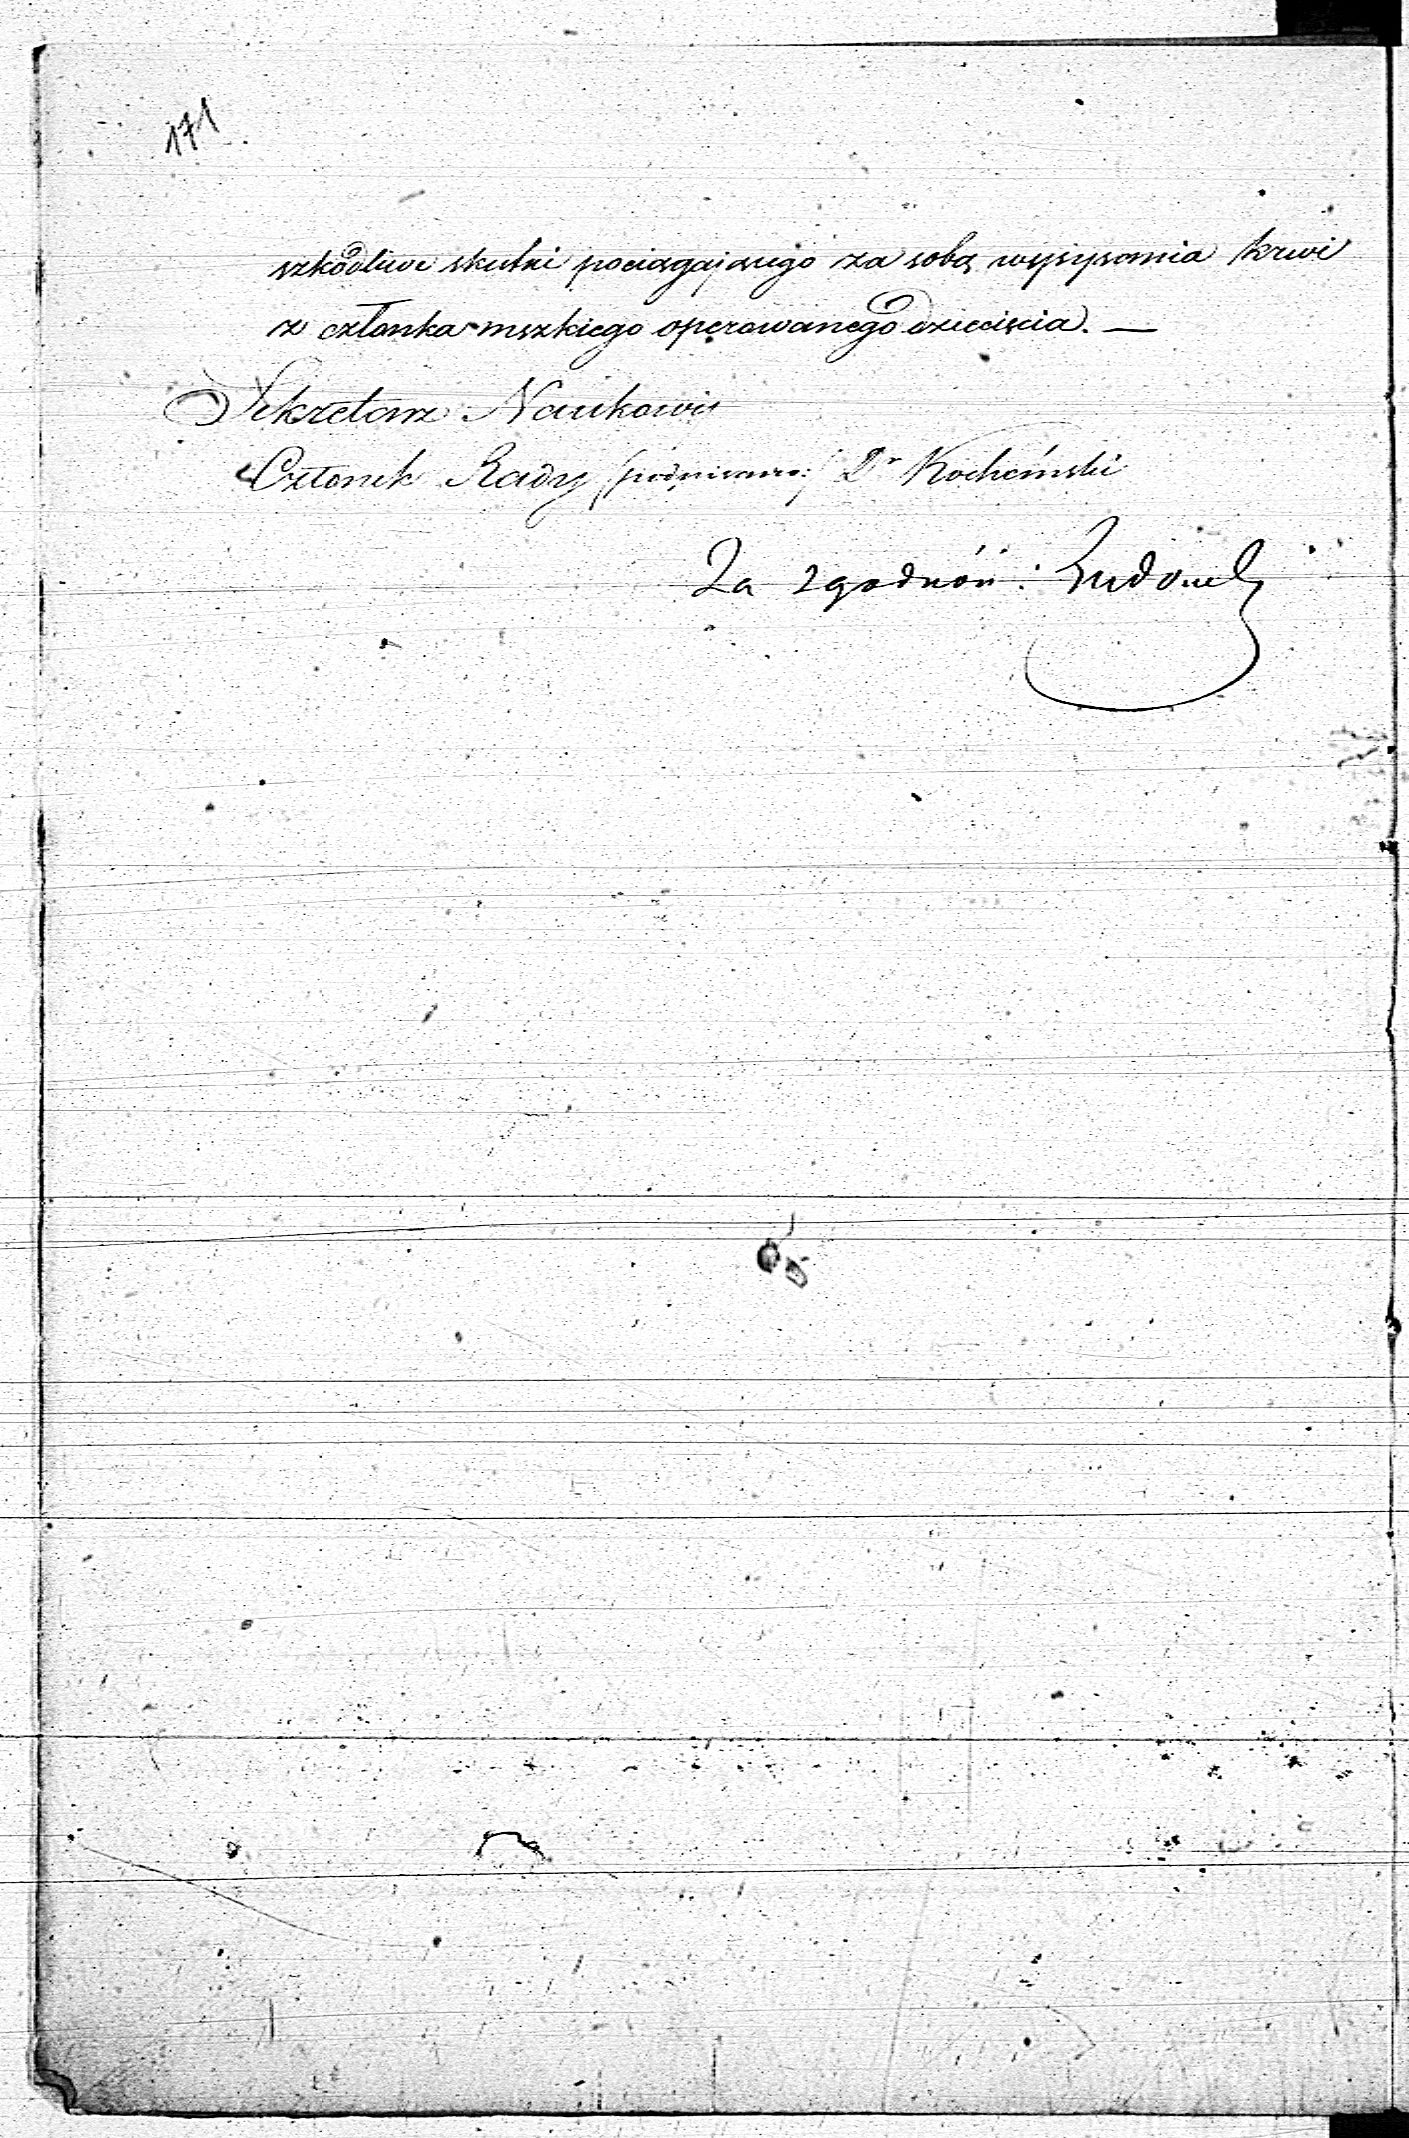 171
szkodliwe skutki pociągającego za sobą wysysania krwi
z członka męzkiego operowanego dziecięcia. —
Sekretarz Naukowy
Członek Rady /podpisano:/ Dr Kocheński
Za zgodność: